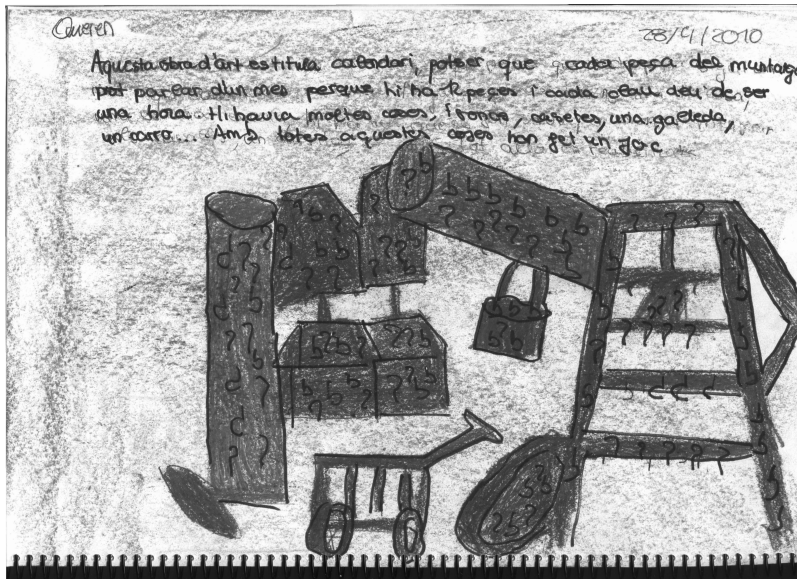 Queren
28/4/2010
Aquesta obra d'art es titula calendari, potser que cada peça del muntatge
pot parlar d'un mes perque hi ha 12 peçes i cada clau deu de ser
una hora. Hi havia moltes coses, troncs, casetes, una galleda,
un carro... Amb totes aquestes coses han fet un joc